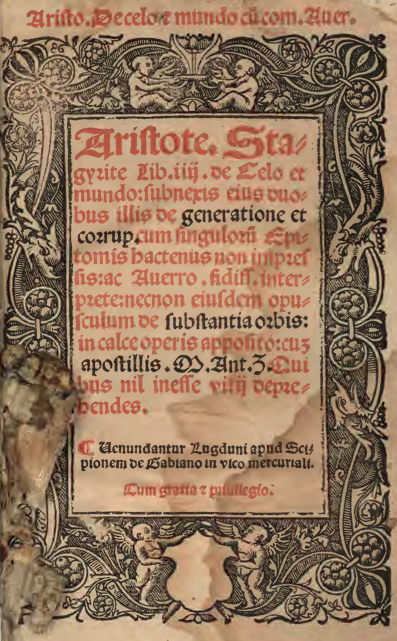 Aristo. De celo ⁊ mundo cū com. Auer.
Aristote. Sta⸗
gyrite Lib.iiij. de Celo et
mundo: subnexis eius duo⸗
bus illis de generatione et
corrup. cum singuloꝝ Epi⸗
tomis hactenus non impres
sis: ac Auerro. fidiss. inter⸗
prete: necnon eiusdem opu⸗
sculum de substantia orbis:
in calce operis apposito: cuʒ
apostillis. M. Ant. Z. Qui
bus nil inesse vitij depre⸗
hendes.
¶ Uenundantur Lugduni apud Sci⸗
pionem de Gabiano in vico mercuriali.
Cum gratia ⁊ priuilegio.